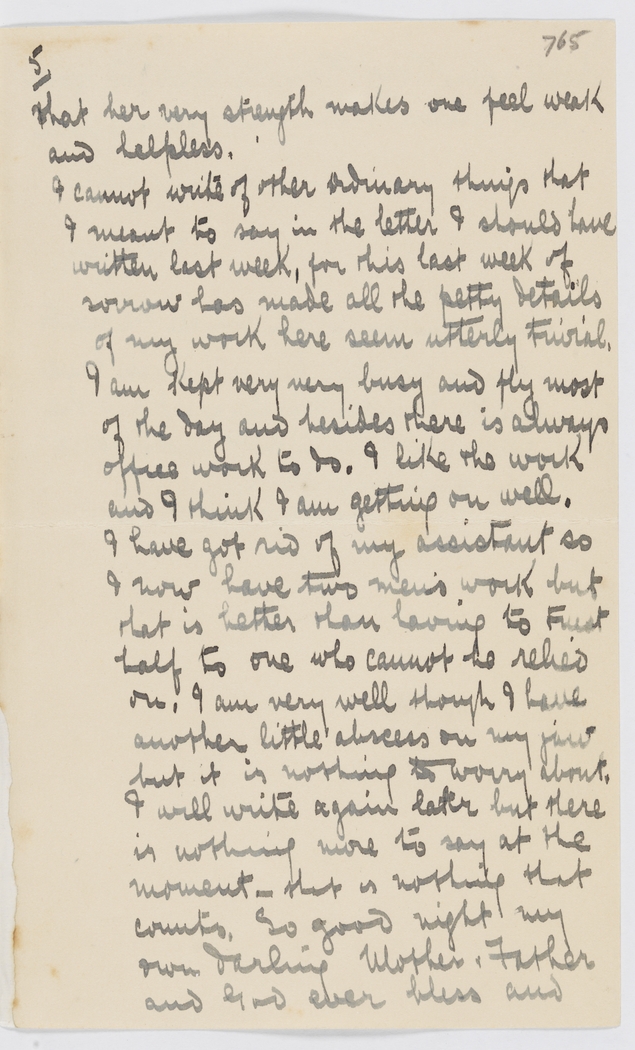 765
5
that her very strength makes one feel weak
and helpless.
I cannot write of other ordinary things that
I meant to say in the letter I should have
written last week, for this last week of
sorrow has made all the petty details
of my work here seem utterly trivial.
I am kept very very busy and fly most
of the day and besides there is always
office work to do. I like the work
and I think I am getting on well.
I have got rid of my assistant so
I now have two men's work but
that is better than having to trust
half to one who cannot be relied
on. I am very well though I have
another little abscess on my jaw
but it is nothing to worry about.
I will write again later but there
is nothing more to say at the
moment – that is nothing that
counts. So good night my
own darling Mother. Father
and God ever bless and